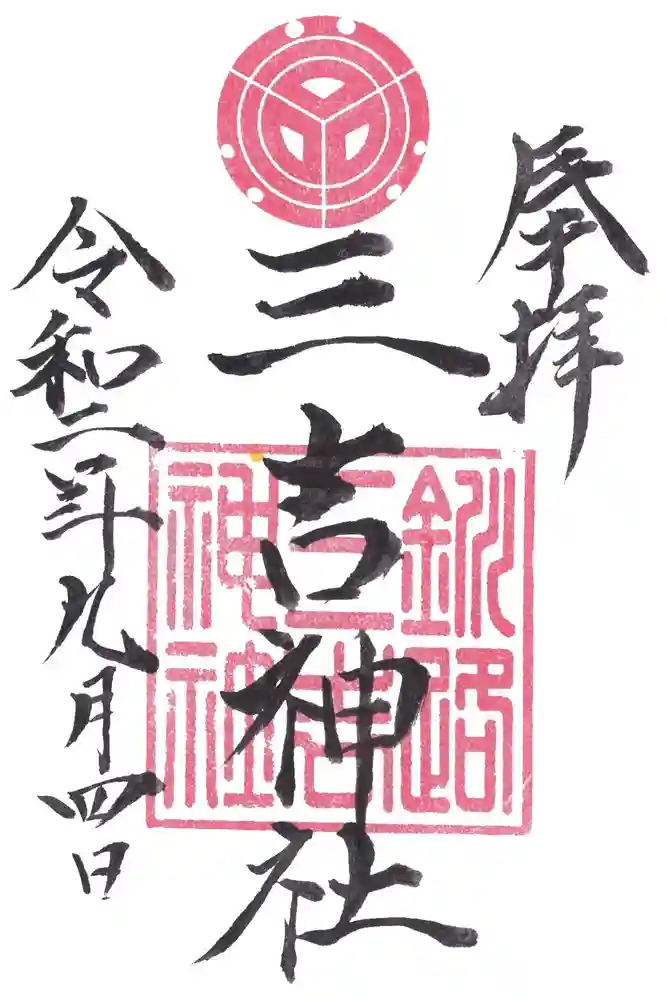 奉拝
三吉神社
釧路
三吉
神社
令和二年九月四日